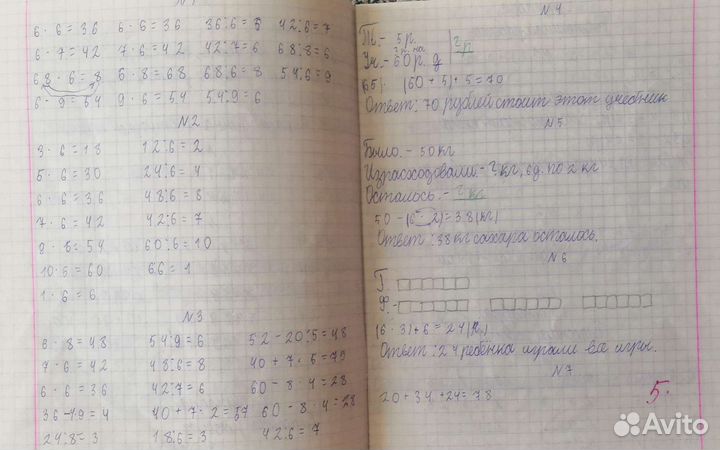 N1
6 · 6 = 36   6 · 6 = 36   36 : 6 = 6   42 : 6 = 7
6 · 7 = 42   7 · 6 = 42   42 : 7 = 6   68 : 8 = 6
6 8 · 6 = 8   6 · 8 = 68   68 : 6 = 8   54 : 6 = 9
6 · 9 = 54   9 · 6 = 54   54 : 9 = 6
N2
3 · 6 = 18   12 : 6 = 2
5 · 6 = 30   24 : 6 = 4
6 · 6 = 36   48 : 6 = 8
7 · 6 = 42   42 : 6 = 7
· 6 = 54   60 : 6 = 10
10 · 6 = 60   6 : 6 = 1
1 · 6 = 6
N3
· 8 = 48   54 : 9 = 6   52 - 20 : 5 = 48
7 · 6 = 42   48 : 6 = 8   40 + 7 · 5 = 75
6 · 6 = 36   42 : 7 = 6   60 - 8 · 4 = 28
36 : 9 = 4   40 + 7 · 2 = 57   60 - 8 · 4 = 28
24 : 8 = 3   18 : 6 = 3   42 : 6 = 7
N4
- 5 р.
? р. на
Уч. - 60 р. д
?р.
(60 + 5) + 5 = 70
Ответ: 70 рублей стоит этот учебник
N5
Было - 50 кг
Израсходовали - ? кг, 6 д. по 2 кг
Осталось - ? кг
50 - (6 · 2) = 38 (кг)
Ответ: 38 кг сахара осталось.
N6
Г.
Ф. -
(6 · 3) + 6 = 24 (р.)
Ответ: 24 ребёнка играли все игры.
N7
20 + 34 + 24 = 78
5.
Avito